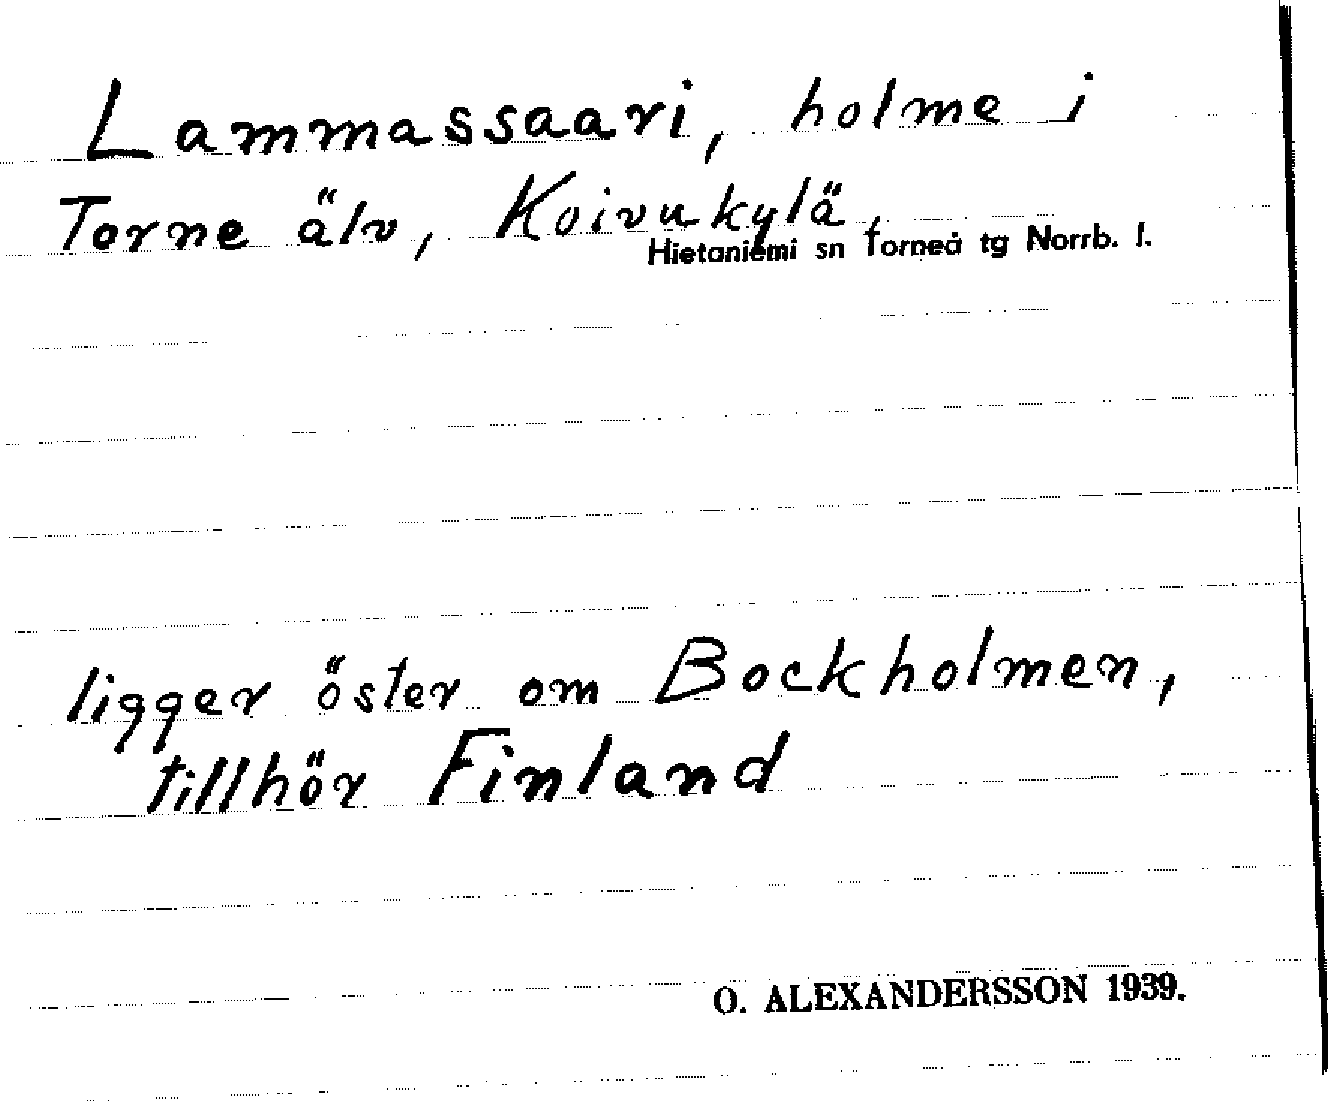 Lammassaari, holme i
Torne älv, Koivukylä,
Hietaniemi sn Torneå tg Norrb. l.
ligger öster om Bockholmen,
tillhör Finland
O. ALEXANDERSSON 1939.